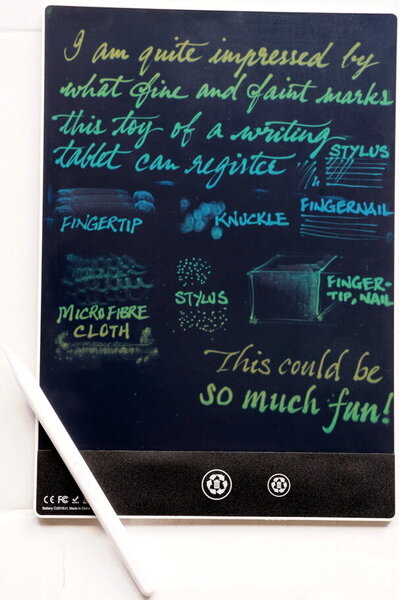 I am quite impressed by
what fine and faint marks
this toy of a writing
tablet can register
STYLUS
FINGERTIP
KNUCKLE
FINGERNAIL
MICROFIBRE
CLOTH
STYLUS
FINGER-
TIP, NAIL
This could be
so much fun!
CE FC
Made in China